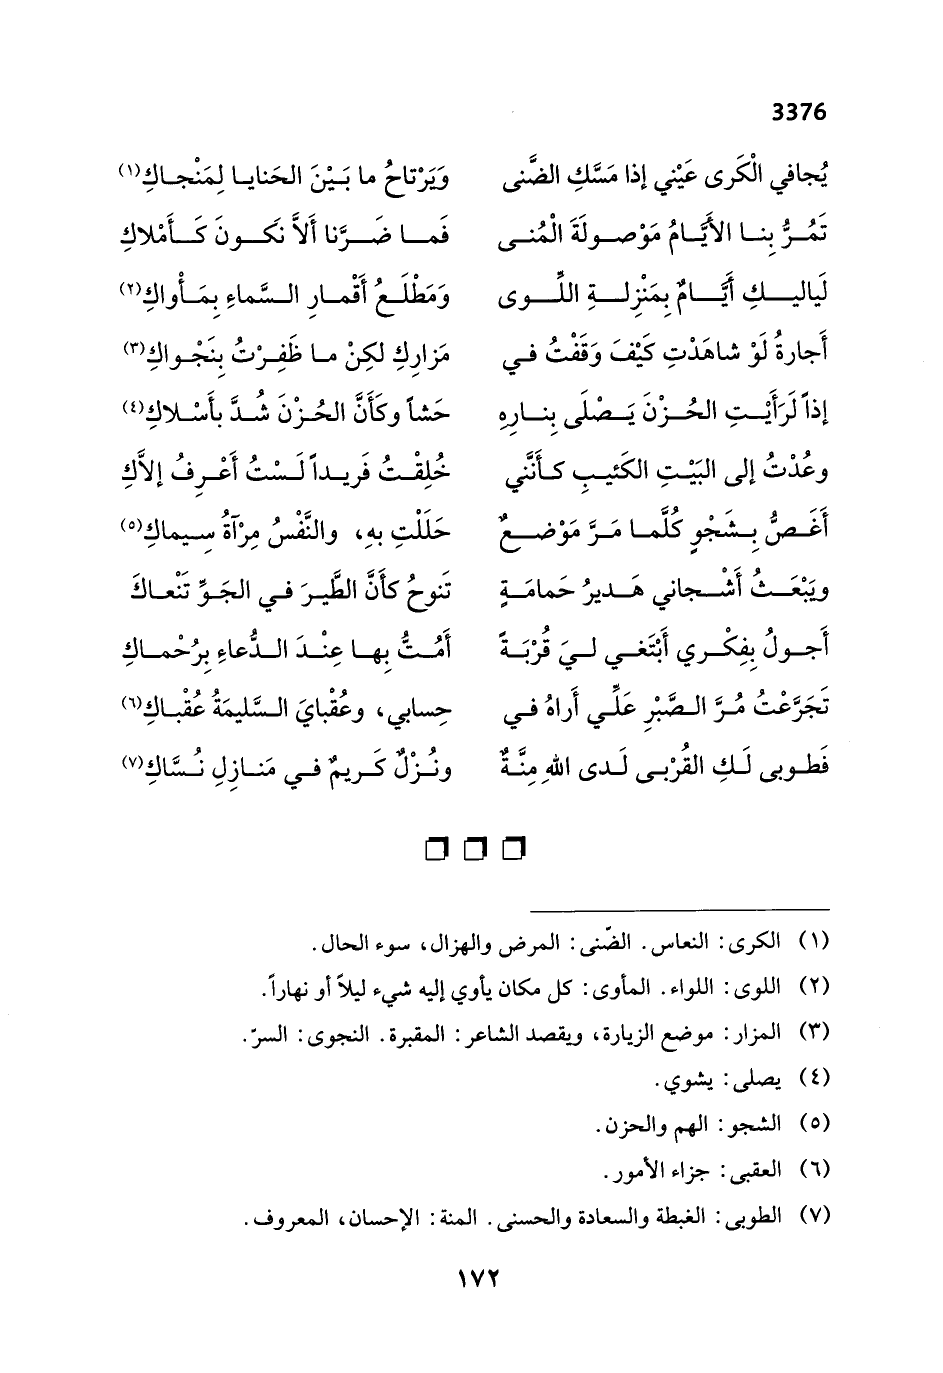 3376
يُجافي الْكَرى عَيْني إذا مَسَّكِ الضَّنى وَيَرْتاحُ ما بَيْنَ الحَنايا لِمَنْجاكِ(١)
تَمُرُّ بِنا الأَيَّامُ مَوْصولَةَ الْمُنى فَما ضَرَّنا أَلاَّ نَكونَ كَأَمْلاكِ
لَياليكِ أَيَّامٌ بِمَنْزِلةِ اللِّوى وَمَطْلَعُ أَقْمارِ السَّماءِ بِمَأْواكِ(٢)
أَجارةُ لَوْ شاهَدْتِ كَيْفَ وَقَفْتُ في مَزارِكِ لكِنْ ما ظَفِرْتُ بِنَجْواكِ(٣)
إذاً لَرَأَيْتِ الحُزْنَ يَصْلَى بِنارِهِ حَشاً وكَأَنَّ الحُزْنَ شُدَّ بأَسْلاكِ(٤)
وعُدْتُ إلى البَيْتِ الكَئيبِ كَأَنَّني خُلِقْتُ فَريداً لَسْتُ أَعْرِفُ إلاَّكِ
أَغَصُّ بِشَجْوٍ كُلَّما مَرَّ مَوْضِعٌ حَلَلْتِ بهِ، والنَّفْسُ مِرْآةُ سِيماكِ(٥)
ويَبْعَثُ أَشْجاني هَديرُ حَمامَةٍ تَنوحُ كأَنَّ الطَّيرَ في الجَوِّ تَنْعاكَ
أَجولُ بِفِكْري أَبْتَغي ليَ قُرْبَةً أَمُتُّ بِها عِنْدَ الدُّعاءِ بِرُحْماكِ
تَجَرَّعْتُ مُرَّ الصَّبْرِ عَلِّي أَراهُ في حِسابي، وعُقْبايَ السَّليمَةُ عُقْباكِ(٦)
فَطوبى لَكِ القُرْبى لَدى اللهِ مِنَّةٌ ونُزْلٌ كَريمٌ في مَنازِلِ نُسَّاكِ(٧)
(١) الكرى: النعاس. الضّنى: المرض والهزال، سوء الحال.
(٢) اللوى: اللواء. المأوى: كل مكان يأوي إليه شيء ليلاً أو نهاراً.
(٣) المزار: موضع الزيارة، ويقصد الشاعر: المقبرة. النجوى: السرّ.
(٤) يصلى: يشوي.
(٥) الشجو: الهم والحزن.
(٦) العقبى: جزاء الأمور.
(٧) الطوبى: الغبطة والسعادة والحسنى. المنة: الإحسان، المعروف.
١٧٢